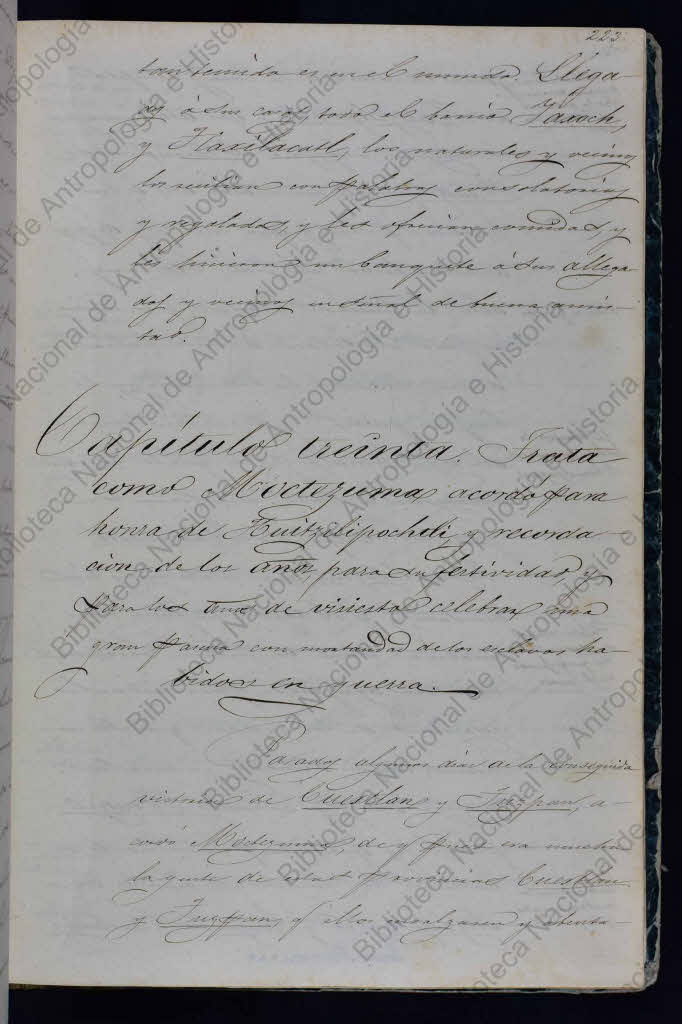 223
tan temida es en el mundo. Llega-
dos á sus casas, todo el barrio Yaxoch,
y Tlaxilacatl, los naturales y vecinos
los recibian con palabras consolatorias
y regaladas, y les ofrecian comidas, y
les hicieron un banquete á sus allega-
dos y vecinos en señal de buena amis-
tad.
Capítulo treinta. Trata
como Moctezuma acordó para
honra de Huitzilipochtli, y recorda-
cion de los años para su festividad, y
para los de visiesto celebrar una
gran pascua con mortandad de los esclavos ha-
bidos en guerra.
Pasados algunos dias de la conseguida
victoria de Cuestlan y Tuzpan, a-
cordó Moctezuma, de q. pues era mucha
la gente de estas provincias Cuestlan
y Tuzpan, q. ellos y
Biblioteca Nacional de Antropología e Historia